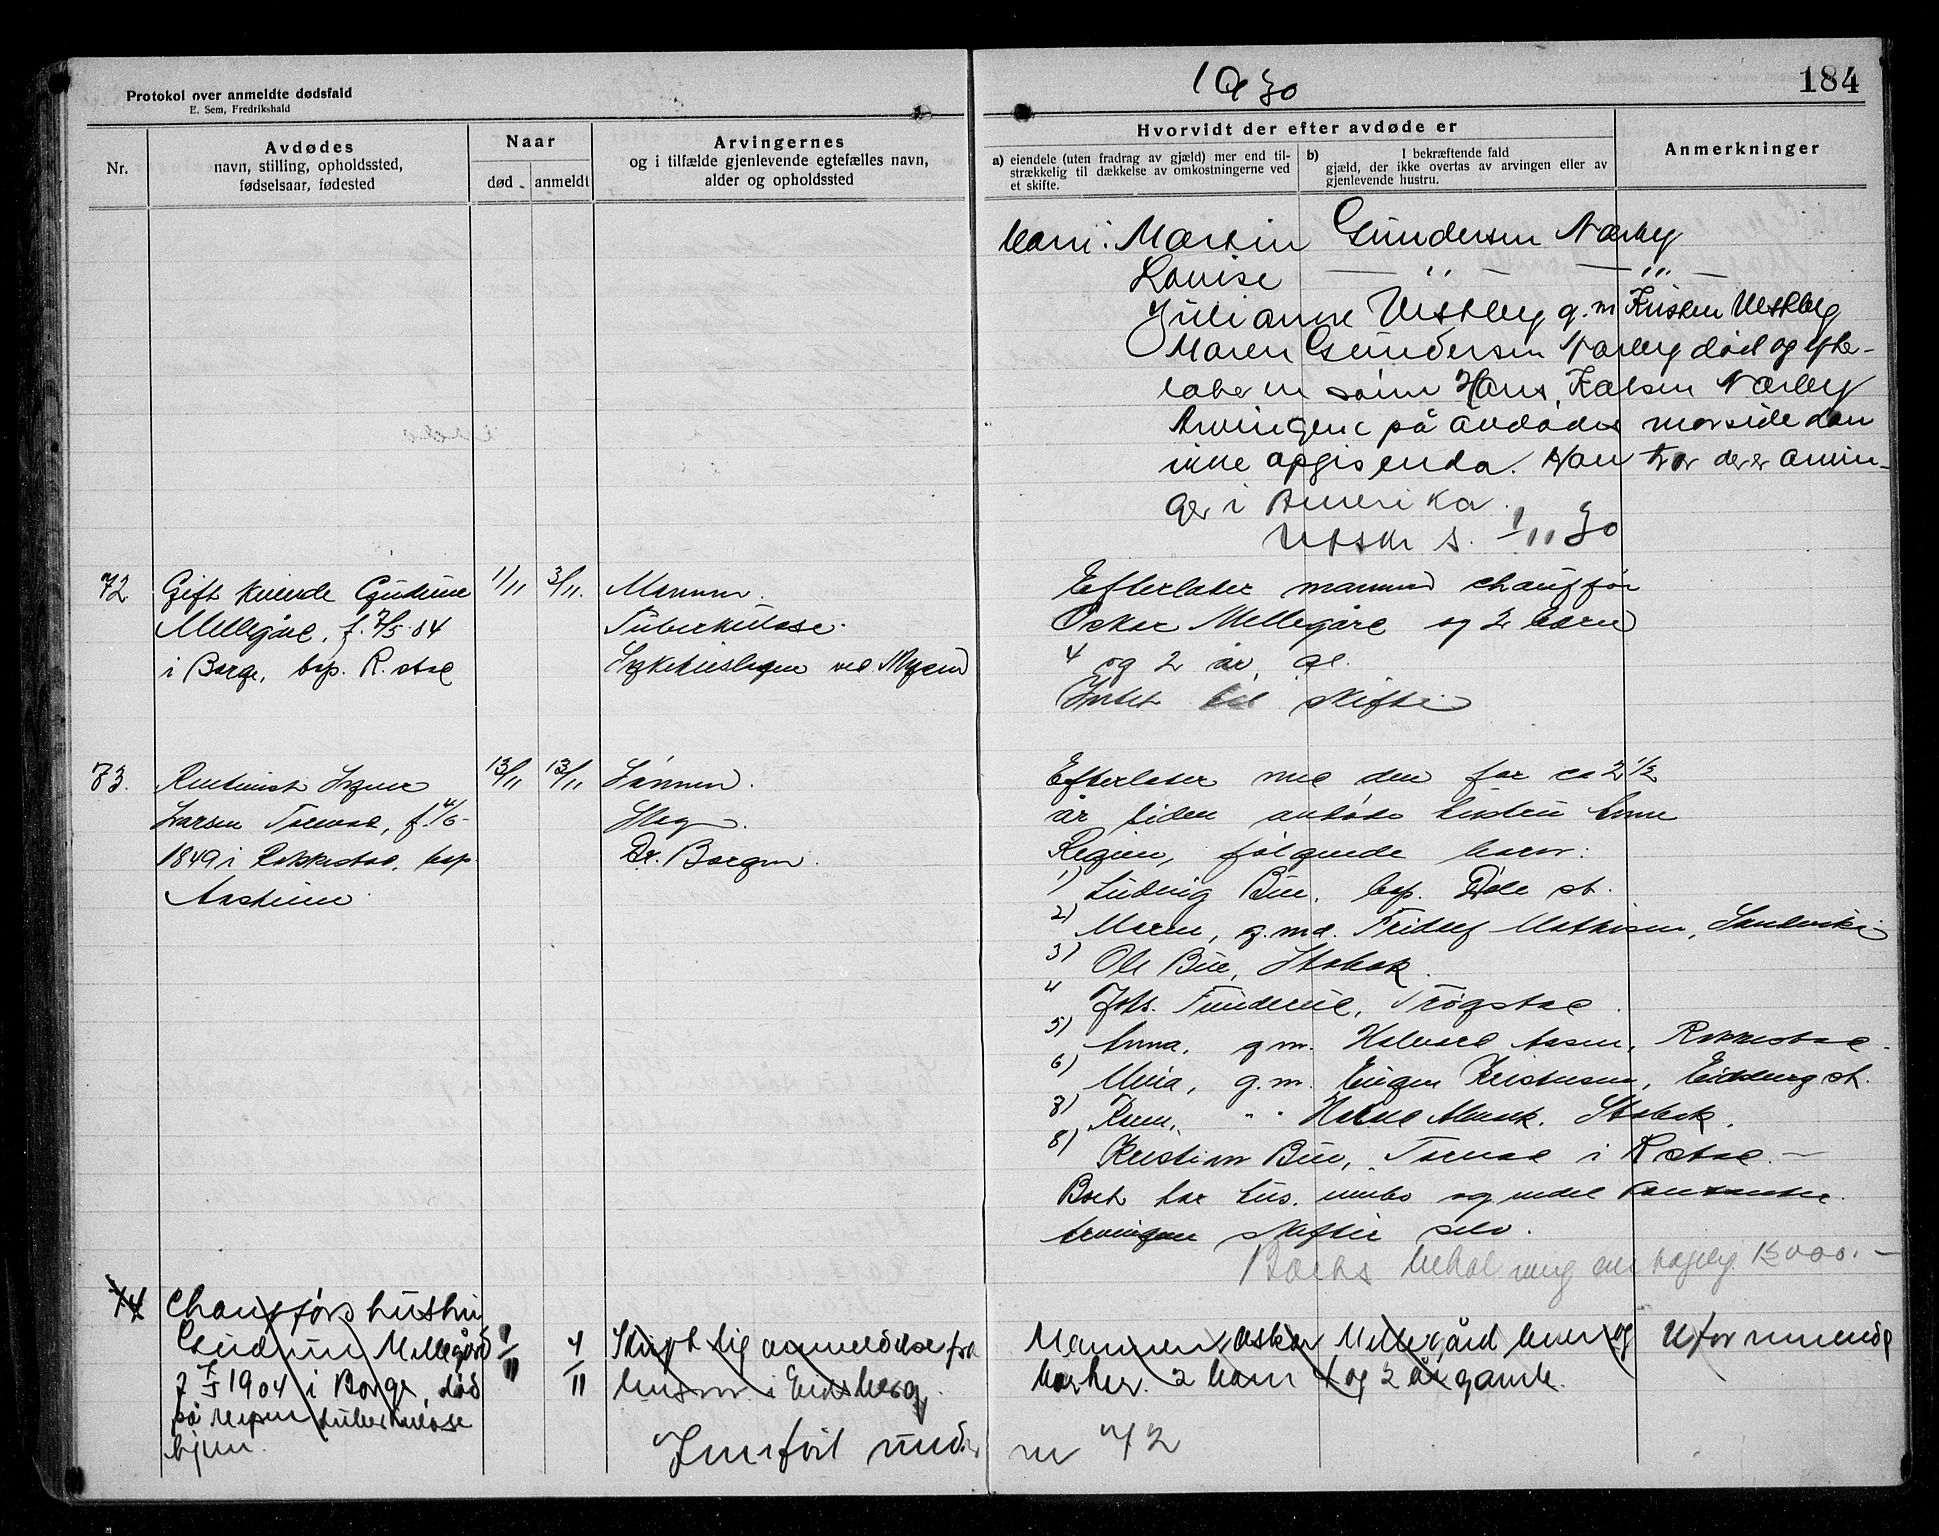 Protokol over anmeldte dødsfald
E. Sem, Fredrikshald
1930
184
Nr.
Avdødes
navn, stilling, opholdssted,
fødselsaar, fødested
Naar
død
anmeldt
Arvingernes
og i tilfælde gjenlevende egtefælles navn,
alder og opholdssted
Hvorvidt der efter avdøde er
a) eiendele (uten fradrag av gjæld) mer end til-
strækkelig til dækkelse av omkostningerne ved
et skifte.
b) I bekræftende fald
gjæld, der ikke overtas av arvingen eller av
gjenlevende hustru.
Anmerkninger
barn: Martin Gundersen Nærby
Lovise — " — — " —
Julianne Vestby g. m. Kristen Vestby
Maren Gundersen Nærby død og efter-
later en sønn Hans Karlsen Nærby
Arvingene på avdødes morside kan
ikke opgis enda. Han tror der er arvin-
ger i Amerika.
Utskr s. 1/11 30
72
Gift kvinde Gudrun
Mellegård, f. 7/5 04
i Borge, bop. R.stad
1/11
3/11.
Mannen.
Tuberkulose.
Sykehuslegen ved Mysen
Efterlater mannen chauffør
Oskar Mellegård og 2 barn
4 og 2 år gl.
Intet til skifte
73.
Rentenist
Larsen Torvad, f. 4/6-
1849 i Rakkestad, bop.
13/11
13/11
Sønnen.
Slag.
Dr. Borgen.
Efterlater med den for ca 2 1/2
år siden avdøde hustru Anne
følgende barn:
1) Ludvig Bue, bop.
2) Maren, g. m. Fridtjof Mathisen,
3) Ole Bue, Slobak.
4 Johs. Funderud, Trøgstad.
5) Anna, g. m. Halvard Aasen, Rakkestad.
6) Mina, g. m. Eugen Kristensen, Eidsberg st.
7) Karen, " " Slobak.
8) Kristian Bue, Torvad i R.stad. —
Boet har hus, innbo og endel kontanter.
Arvingene skifter selv.
Boets behol ning antagelig 15000.—
74
Chaufførs hustru
Gudrun Mellegård
f 7/5 1904 i Borge, død
på Mysen tuberkulose
hjem.
1/11
4/11
Skriftlig anmeldelse fra
lensm. i Eidsberg.
Mannen Oskar Mellegård lever og
har her 2 barn 4 og 2 år gamle.
Uformuende
Innført under
nr 72